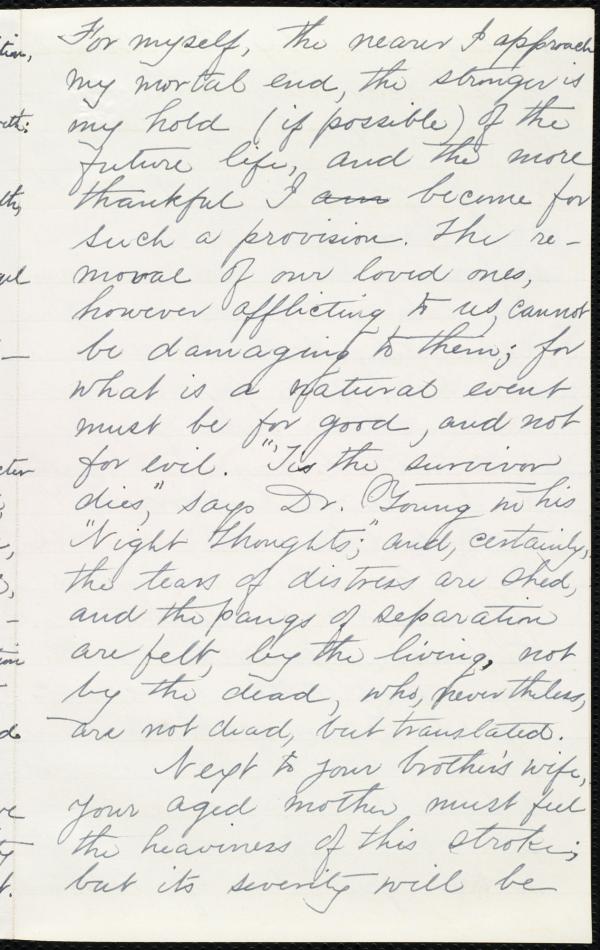 For myself, the nearer I approach
my mortal end, the stronger is
my hold (if possible) of the
future life, and the more
thankful I am become for
such a provision. The re-
moval of our loved ones,
however afflicting to us, cannot
be damaging to them; for
what is a natural event
must be for good, and not
for evil. "'Tis the survivor
dies," says Dr. Young in his
"Night Thoughts;" and, certainly,
the tears of distress are shed,
and the pangs of separation
are felt, by the living, not
by the dead, who, nevertheless,
are not dead, but translated.
Next to your brother's wife,
your aged mother must feel
the heaviness of this stroke;
but its severity will be